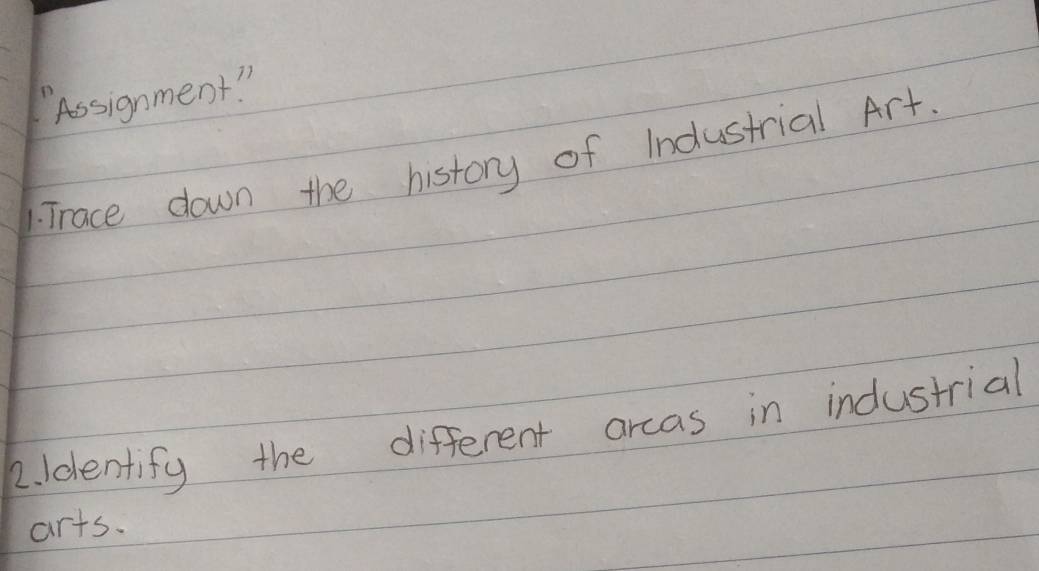 "Assignment."
1. Trace down the history of Industrial Art.
2. Identify the different areas in industrial
arts.